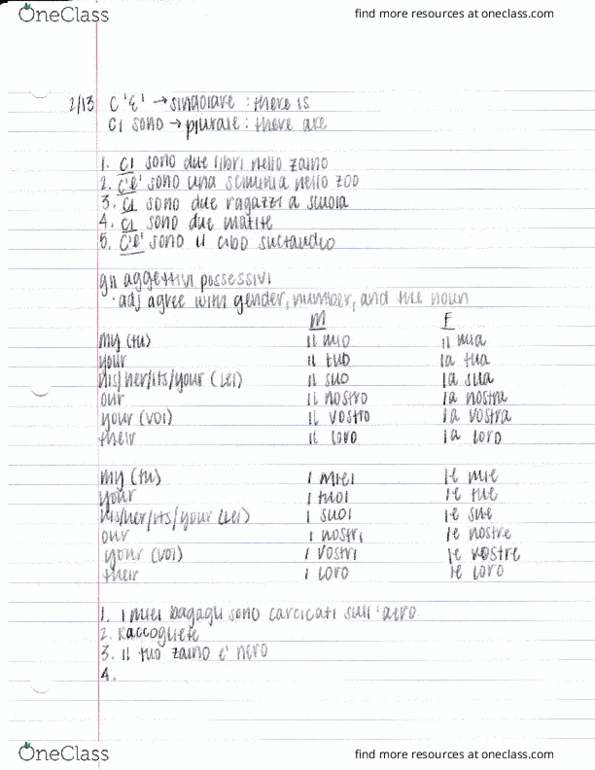 OneClass
find more resources at oneclass.com
2/13 C'è → singolare : there is
Ci sono → plurale : there are
1. Ci sono due libri nello zaino
2. C'è sono una scimmia nello zoo
3. Ci sono due ragazzi a scuola
4. Ci sono due matite
5. C'è sono il cibo
gli aggettivi possessivi
· adj agree with gender, number, and the noun
M F
my (tu) il mio il mia
your il tuo la tua
his/her/its/your (Lei) il suo la sua
our il nostro la nostra
your (voi) il vostro la vostra
their il loro la loro
my (tu) i miei le mie
your i tuoi le tue
his/her/its/your (Lei) i suoi le sue
our i nostri le nostre
your (voi) i vostri le vostre
their i loro le loro
1. i miei bagagli sono carcicati sull'aero
2. Raccogliete
3. il tuo zaino e' nero
4.
OneClass
find more resources at oneclass.com